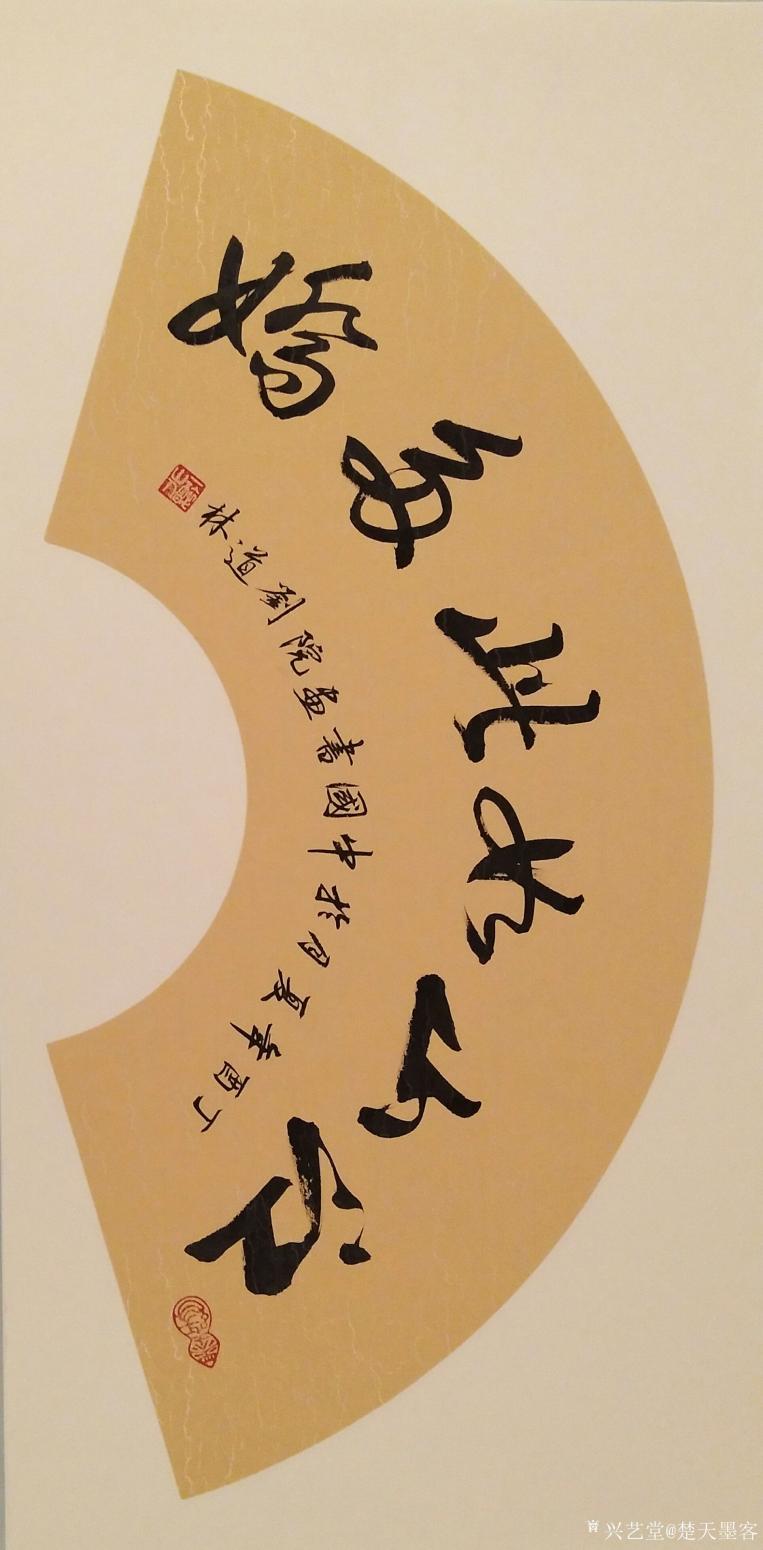 江山如此多娇
丁酉年夏月於中國書畫院劉道林
兴艺堂@楚天墨客